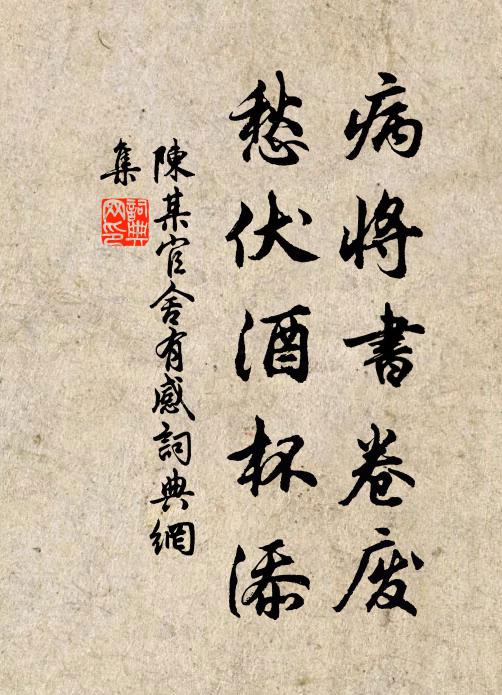 病將書卷废
愁伏酒杯添
陳某官舍有感詞典網
集
詞典
网印